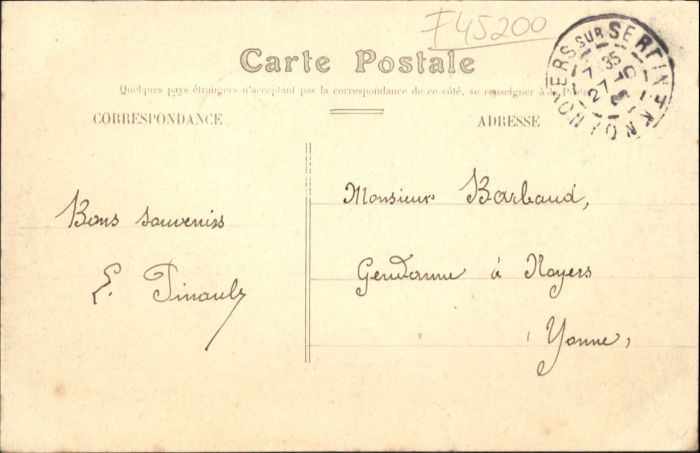 F45200
Carte Postale
Quelques pays étrangers n'acceptant pas la correspondance de ce côté, se renseigner à la Poste
CORRESPONDANCE
ADRESSE
NOYERS SUR SEREIN YONNE
7 35
27 -10
08
Bons souvenirs
E. Pinault
Monsieur Barbaud,
Gendarme à Noyers
Yonne,